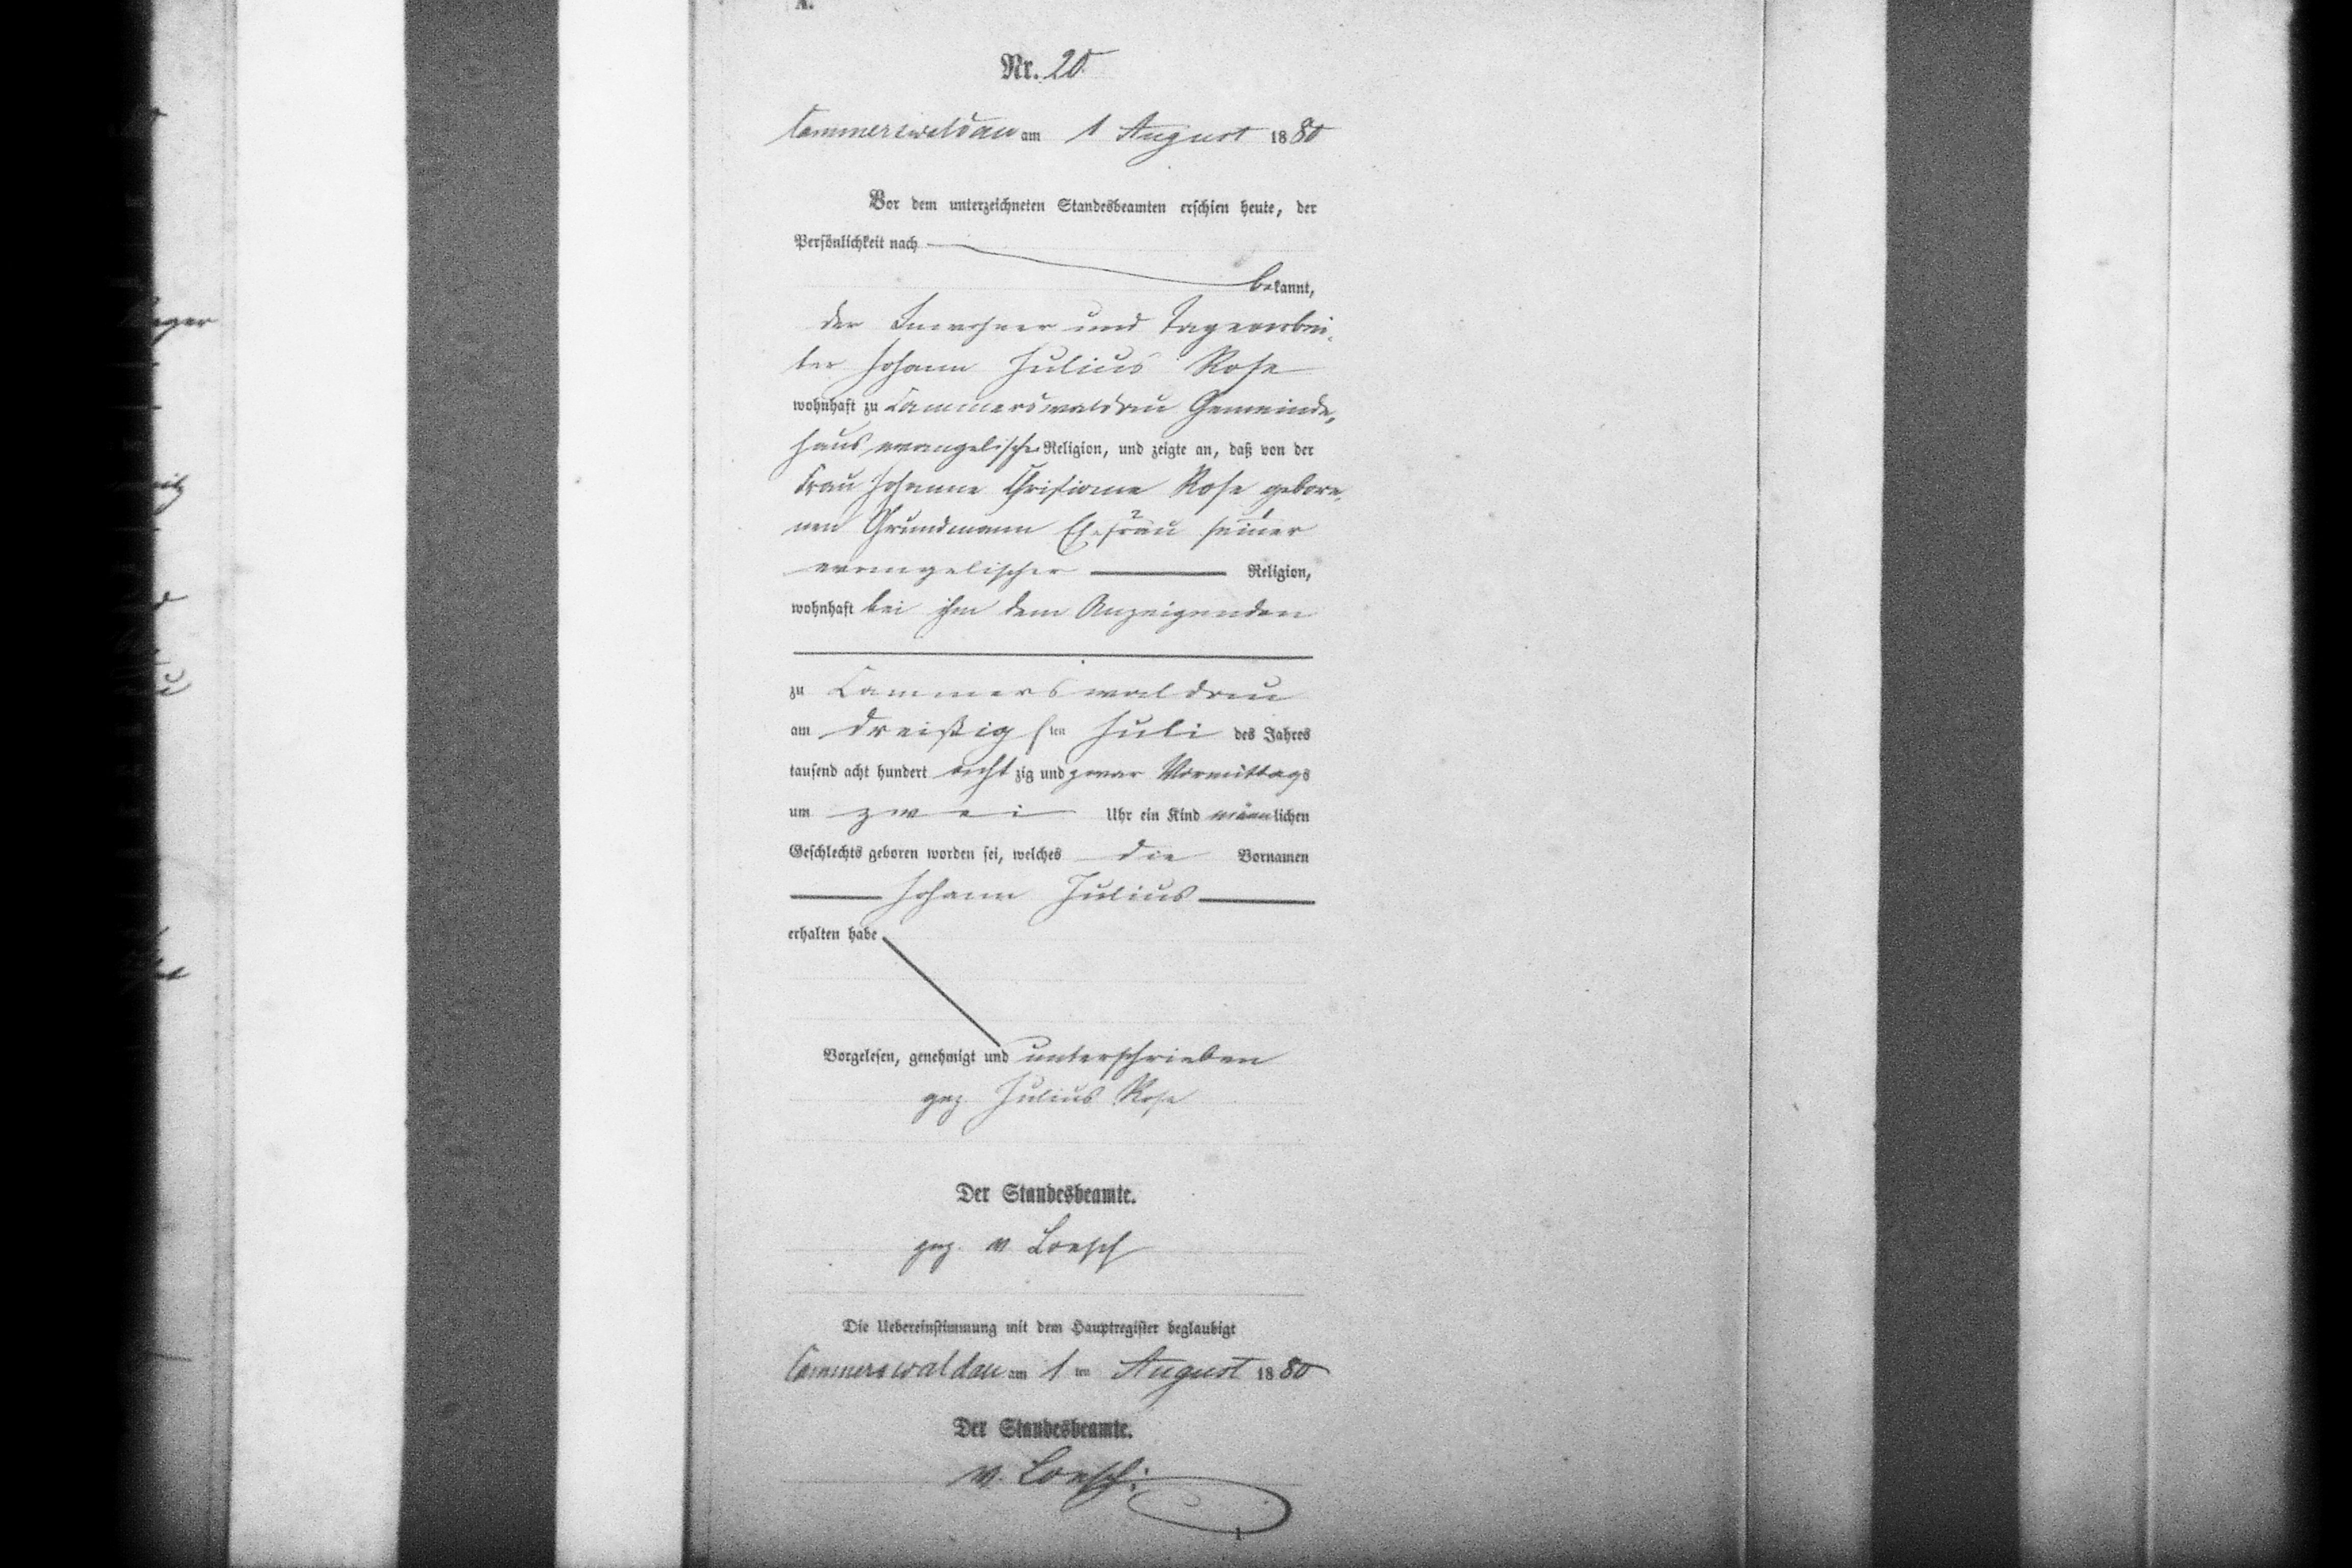 A.
Nr. 20
Cammerswaldau am 1 August 1880
Vor dem unterzeichneten Standesbeamten erschien heute, der
Persönlichkeit nach
bekannt,
der Inwohner und Tagearbei-
ter Johann Julius Rose
wohnhaft zu Cammerswaldau Gemeinde-
haus evangelischer Religion, und zeigte an, daß von der
Frau Johanne Christiane Rose gebore-
nen Grundmann Ehefrau seiner
evangelischer Religion,
wohnhaft bei ihm dem Anzeigenden
zu Cammerswaldau
am dreißigsten Juli des Jahres
tausend acht hundert achtzig und zwar Vormittags
um zwei Uhr ein Kind männlichen
Geschlechts geboren worden sei, welches die Vornamen
Johann Julius
erhalten habe
Vorgelesen, genehmigt und unterschrieben
gez. Julius Rose
Der Standesbeamte.
gez. v. Loesch
Die Uebereinstimmung mit dem Hauptregister beglaubigt
Cammerswaldau am 1ten August 1880
Der Standesbeamte.
v. Loesch